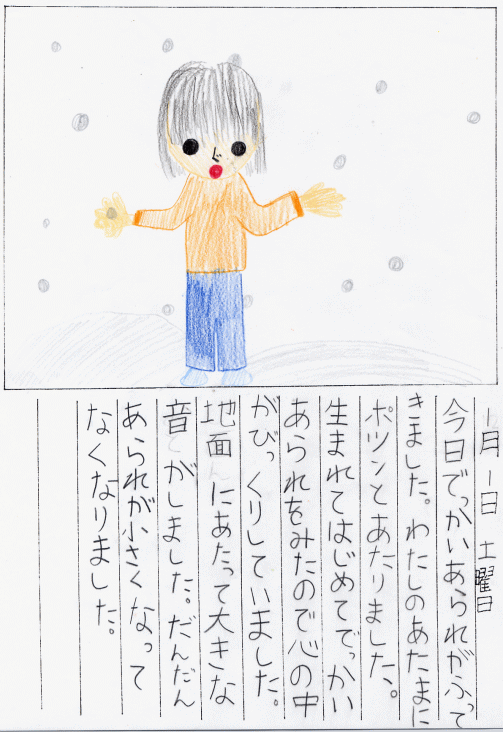 一月一日 土曜日
今日でっかいあられがふって
きました。わたしのあたまに
ポツンとあたりました、。
生まれてはじめてでっかい
あられをみたので心の中
がびっくりしていました。
地面にあたって大きな
音がしました。だんだん
あられが小さくなって
なくなりました。